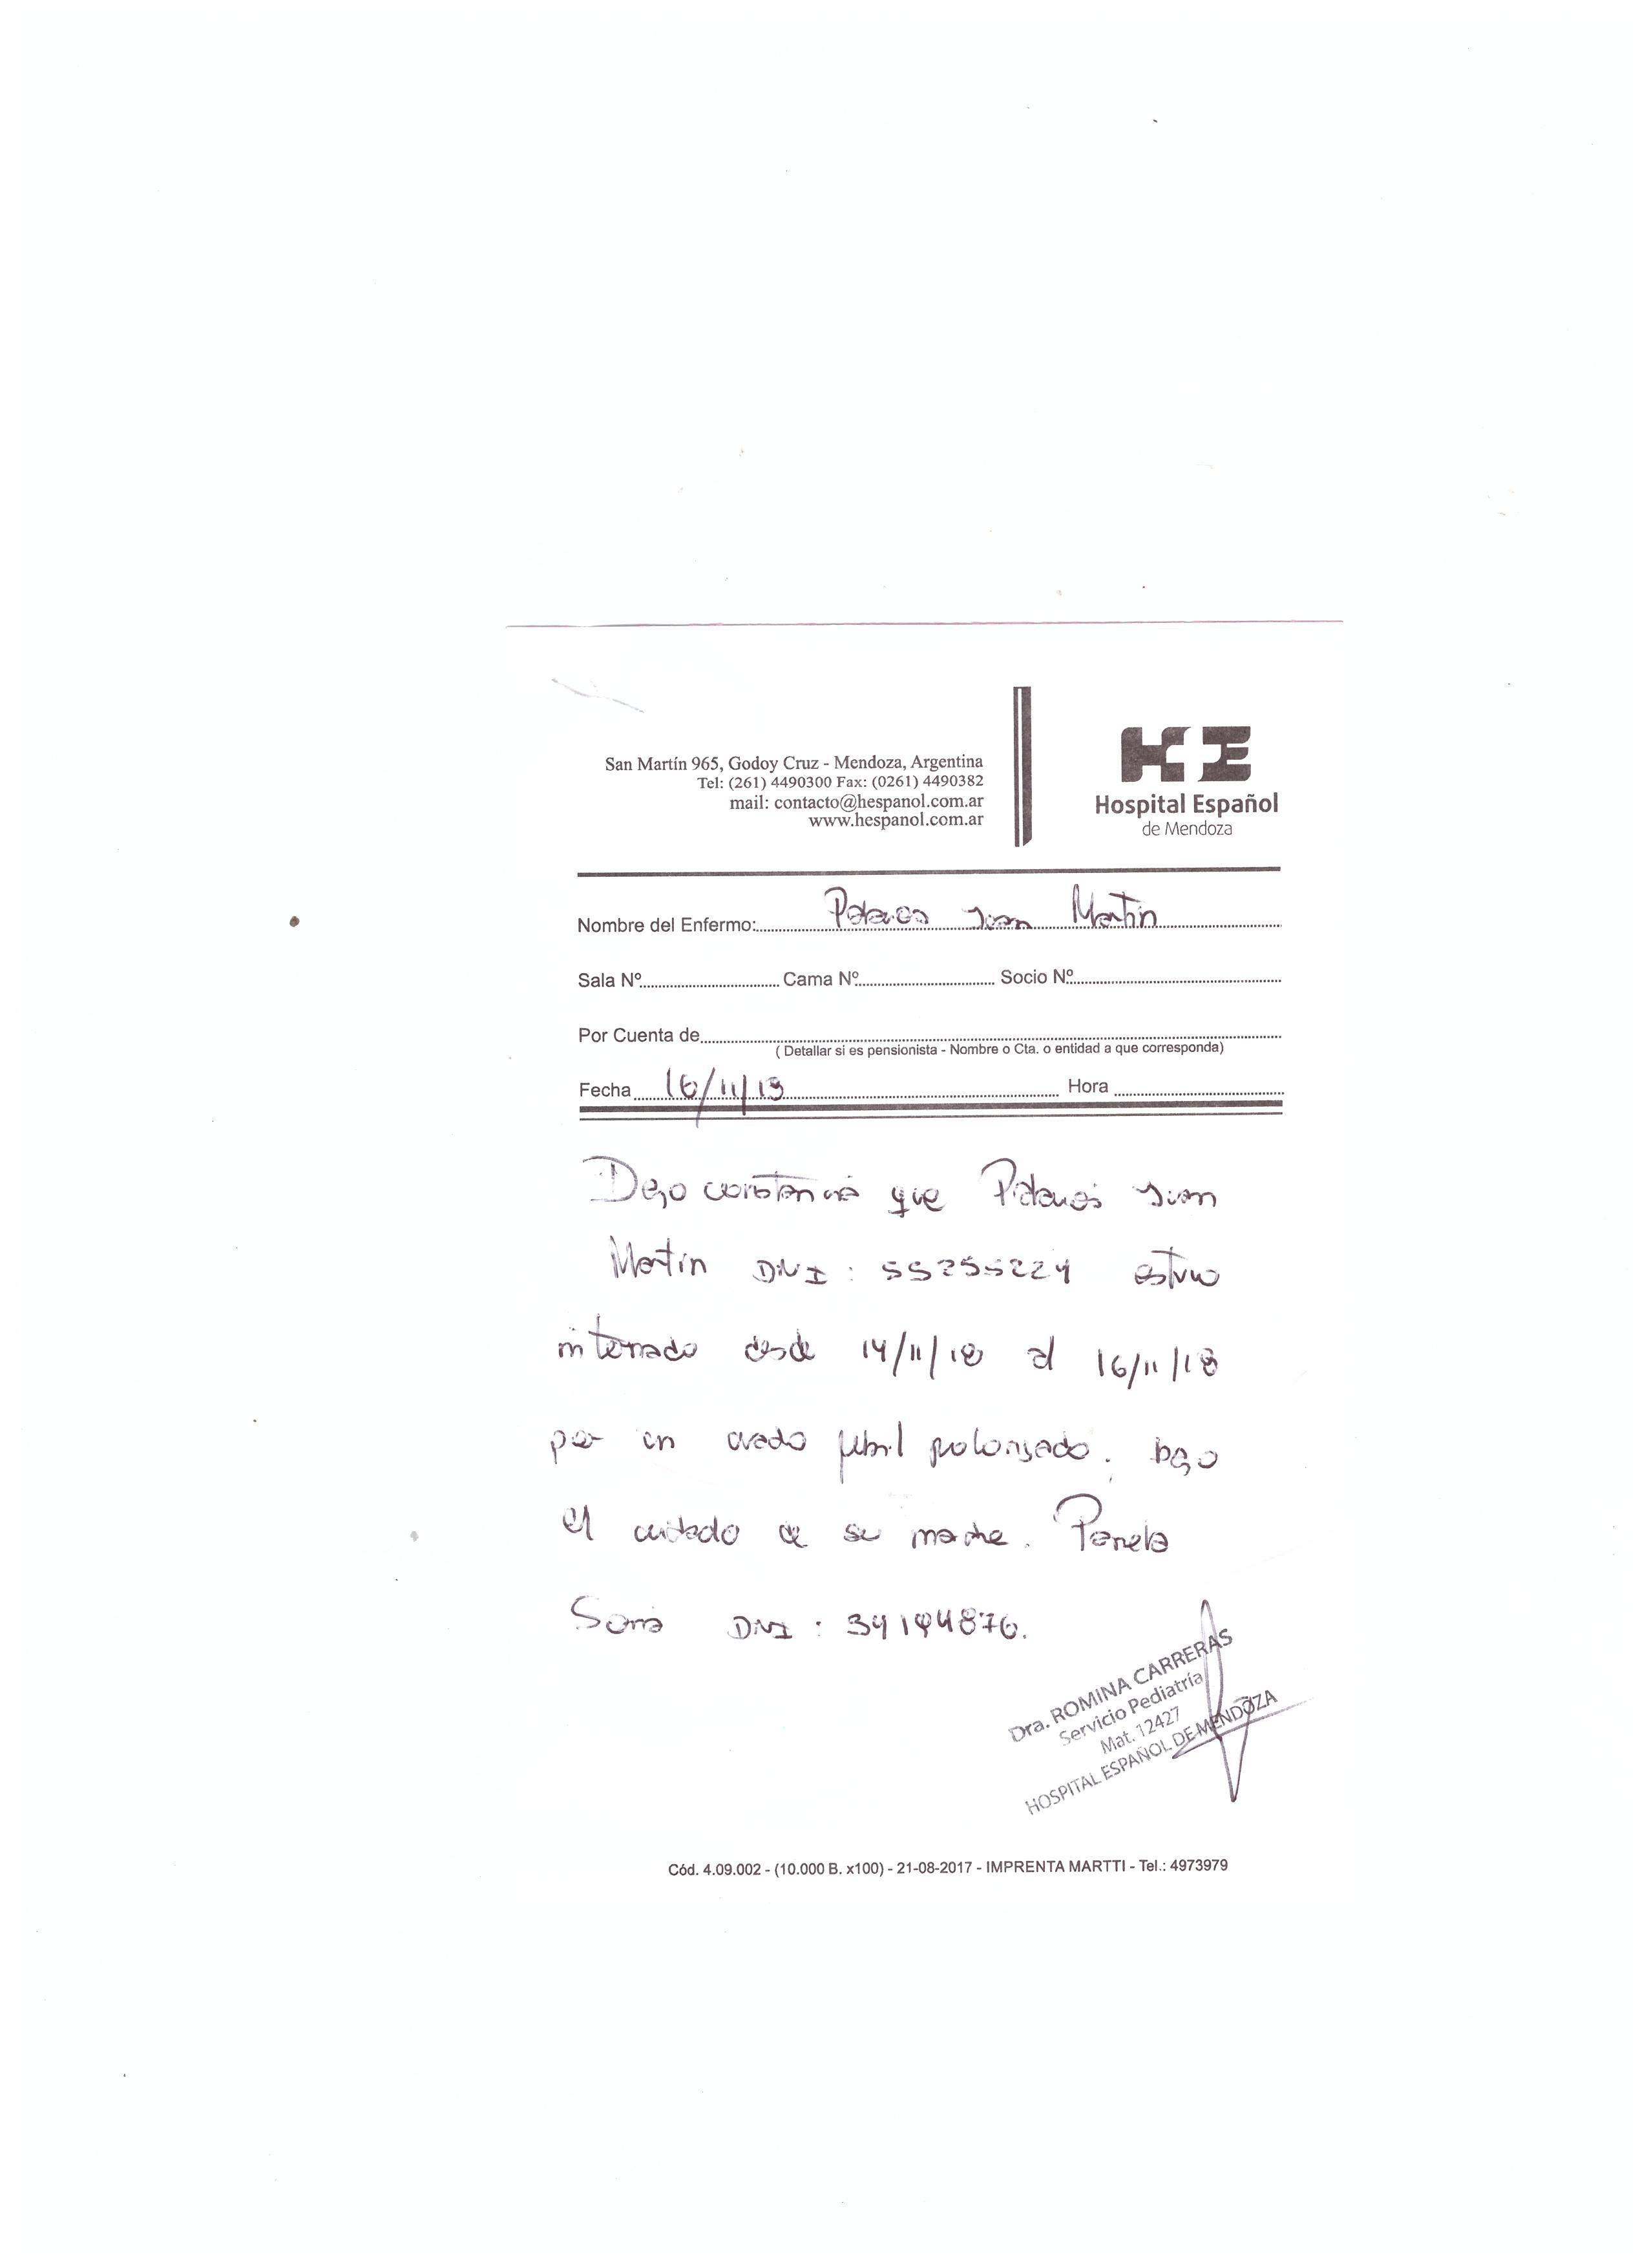 San Martín 965, Godoy Cruz - Mendoza, Argentina
Tel: (261) 4490300 Fax: (0261) 4490382
mail: contacto@hespanol.com.ar
www.hespanol.com.ar
HE
Hospital Español
de Mendoza
Nombre del Enfermo: Juan Martin
Sala Nº Cama Nº Socio Nº
Por Cuenta de
( Detallar si es pensionista - Nombre o Cta. o entidad a que corresponda)
Fecha 16/11/18 Hora
Dejo constancia que Juan
Martin DNI : 55255224 estuvo
internado desde 14/11/18 al 16/11/18
por un cuadro febril prolongado. bajo
el cuidado de su madre. Pamela
DNI : 34144876.
Dra. ROMINA CARRERAS
Servicio Pediatría
Mat. 12427
HOSPITAL ESPAÑOL DE MENDOZA
Cód. 4.09.002 - (10.000 B. x100) - 21-08-2017 - IMPRENTA MARTTI - Tel.: 4973979